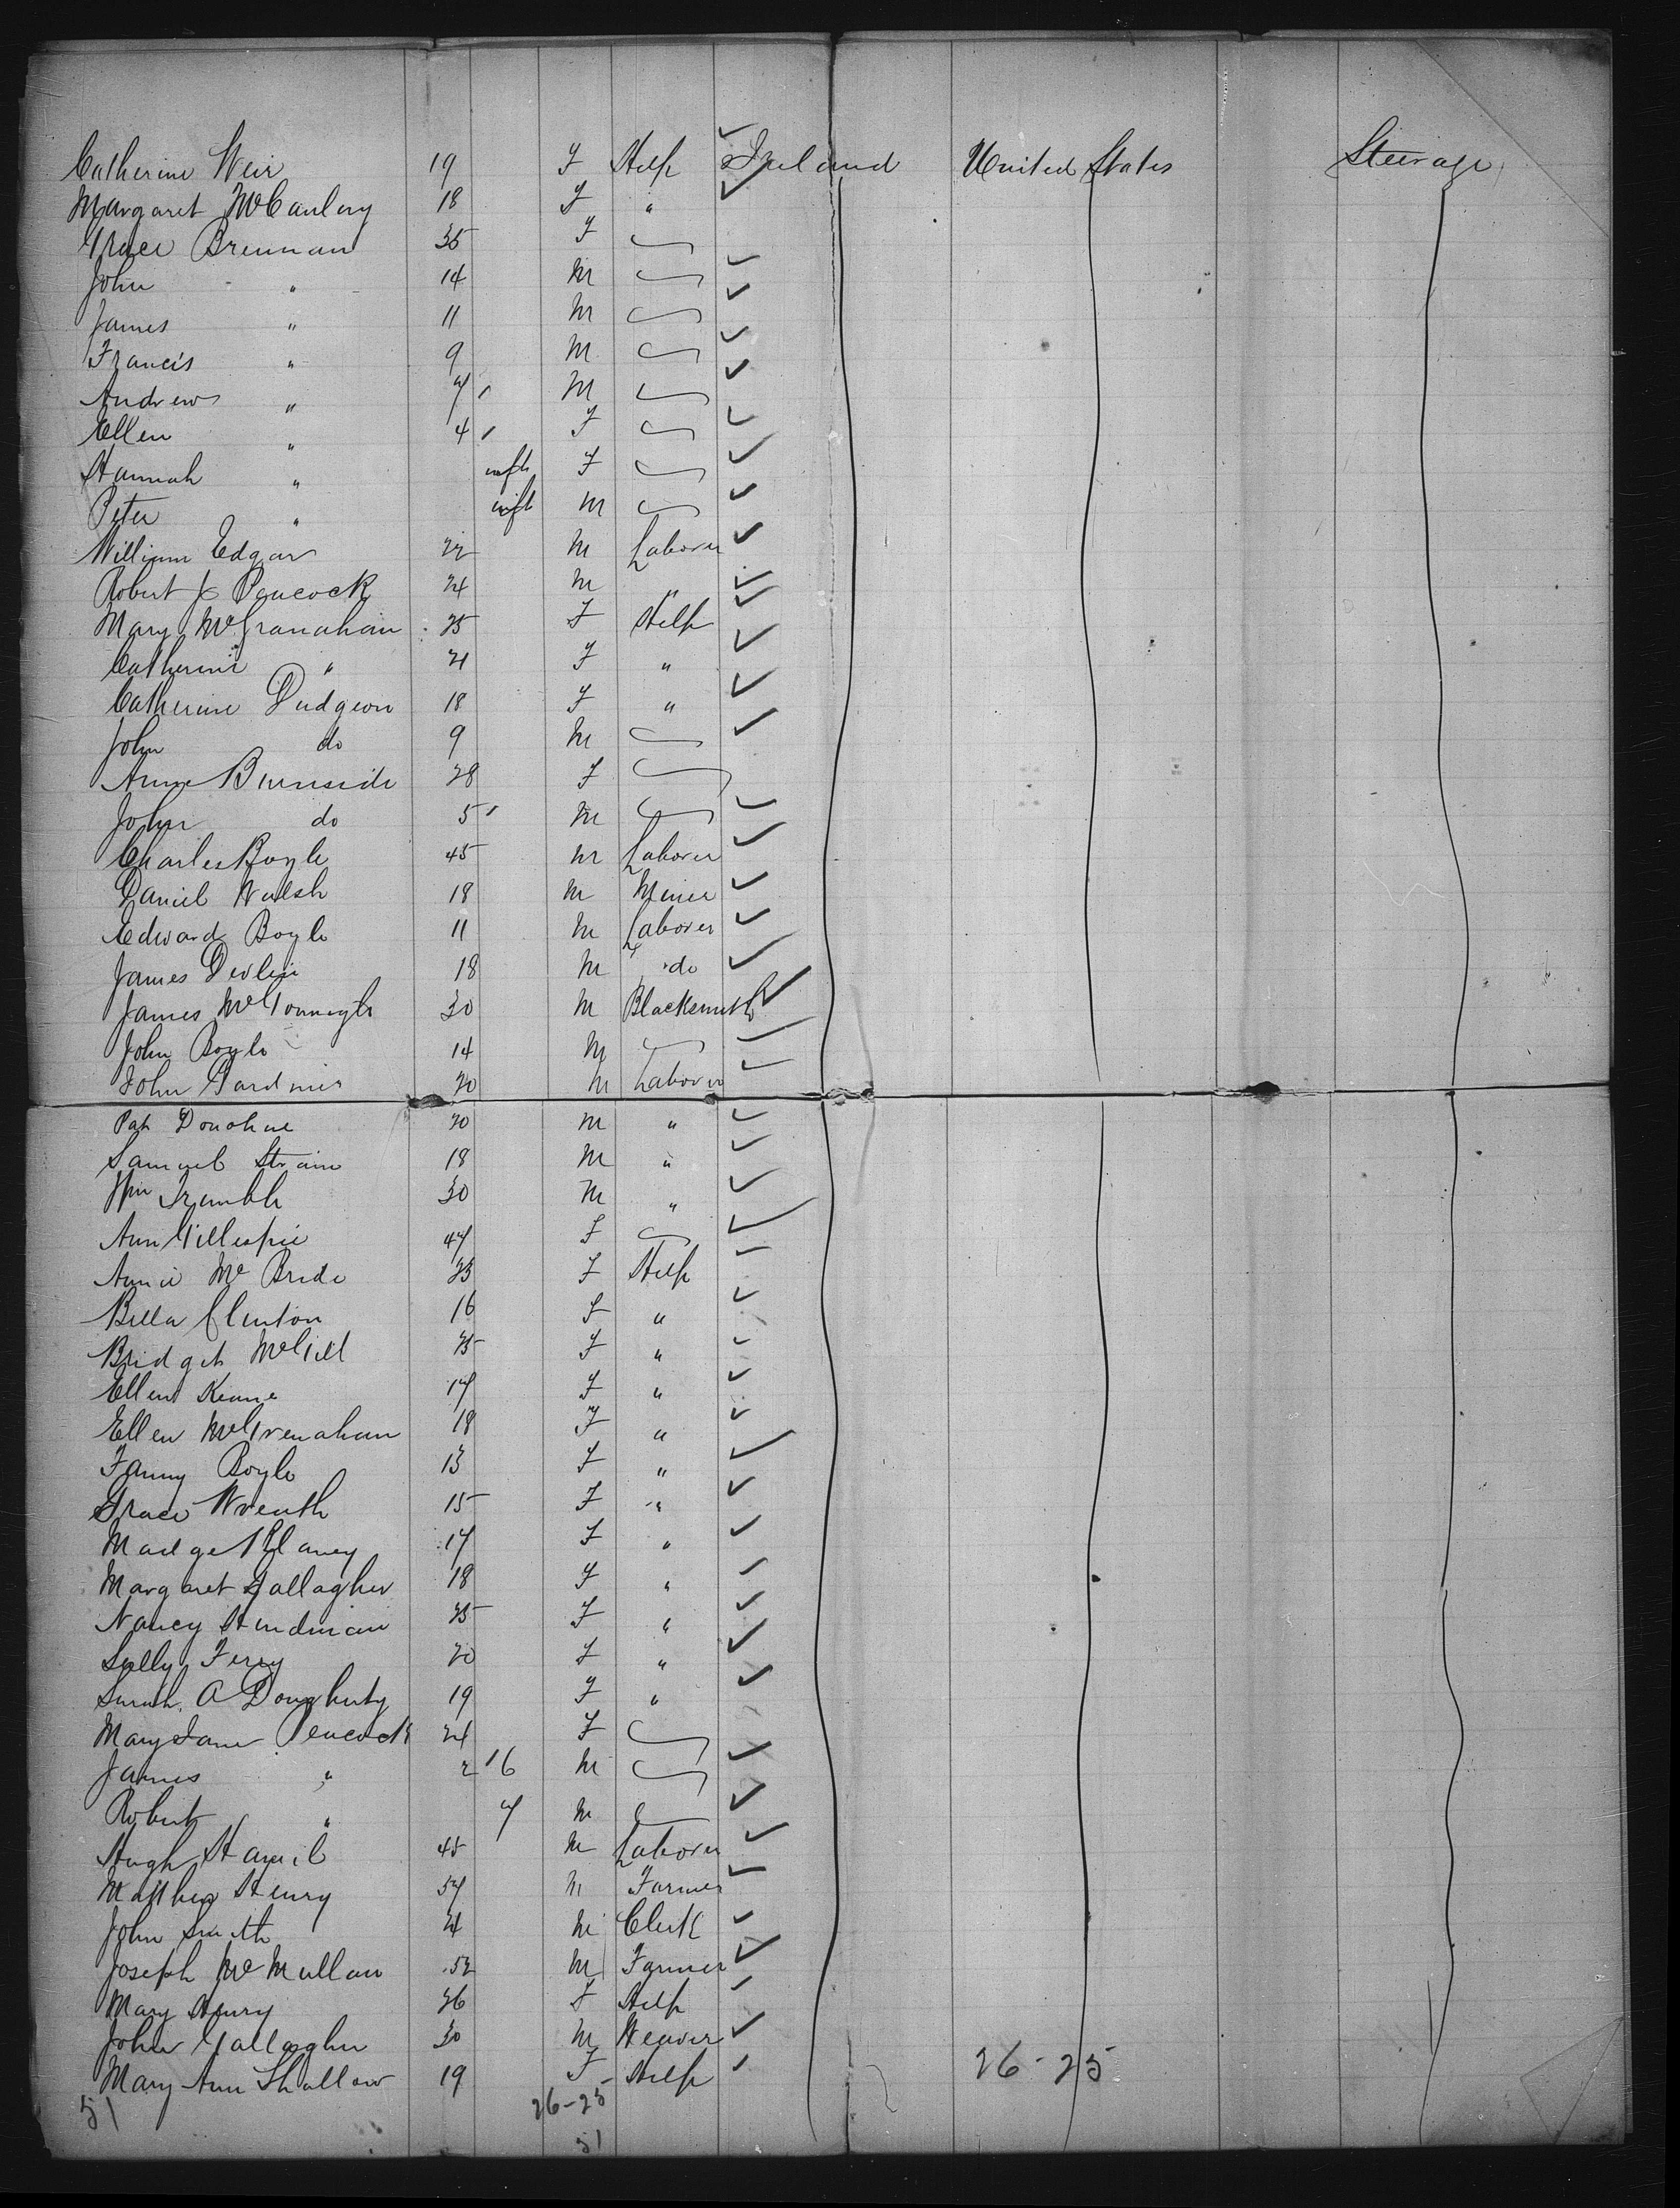 Catherine Weir 19 F Help Ireland United States Steerage
Margaret McCauley 18 F "
Grace Brennan 35 F
John " 14 M
James " 11 M
Francis " 9 M
Andrew " 7 M
Ellen " 4 F
Hannah " inft F
Peter " inft M
William Edgar 22 M Laborer
Robert J Peacock 24 M "
Mary McGranahan 25 F Help
Catherine " 21 F "
Catherine Dudgeon 18 F "
John do 9 M
Anne Burnside 28 F
John do 5 M
Charles Boyle 45 M Laborer
Daniel Walsh 18 M Miner
Edward Boyle 11 M Laborer
James Devlin 18 M do
James McGonnigle 30 M Blacksmith
John Boyle 14 M
John Gardner 20 M Laborer
Pat Donohue 20 M "
Samuel Strain 18 M "
Wm Trumble 30 M "
Ann Gillespie 47 F
Annie McBride 23 F Help
Bella Clinton 16 F "
Bridget McGill 25 F "
Ellen Keane 17 F "
Ellen McGrenahan 18 F "
Fanny Boyle 13 F "
Grace Wreath 15 F "
Madge 17 F "
Margaret Gallagher 18 F "
Nancy Hindman 25 F "
Sally Ferry 20 F "
Sarah A Dougherty 19 F "
Mary Jane Peacock 24 F
James " 2 6 M
Robert " 7 M
Hugh 45 M Laborer
Matthew Henry 57 M Farmer
John Smith 21 M Clerk
Joseph McMullan 52 M Farmer
Mary Henry 26 F Help
John Gallagher 30 M Weaver
Mary Ann Shallow 19 F Help 26-25
51 26-25
51